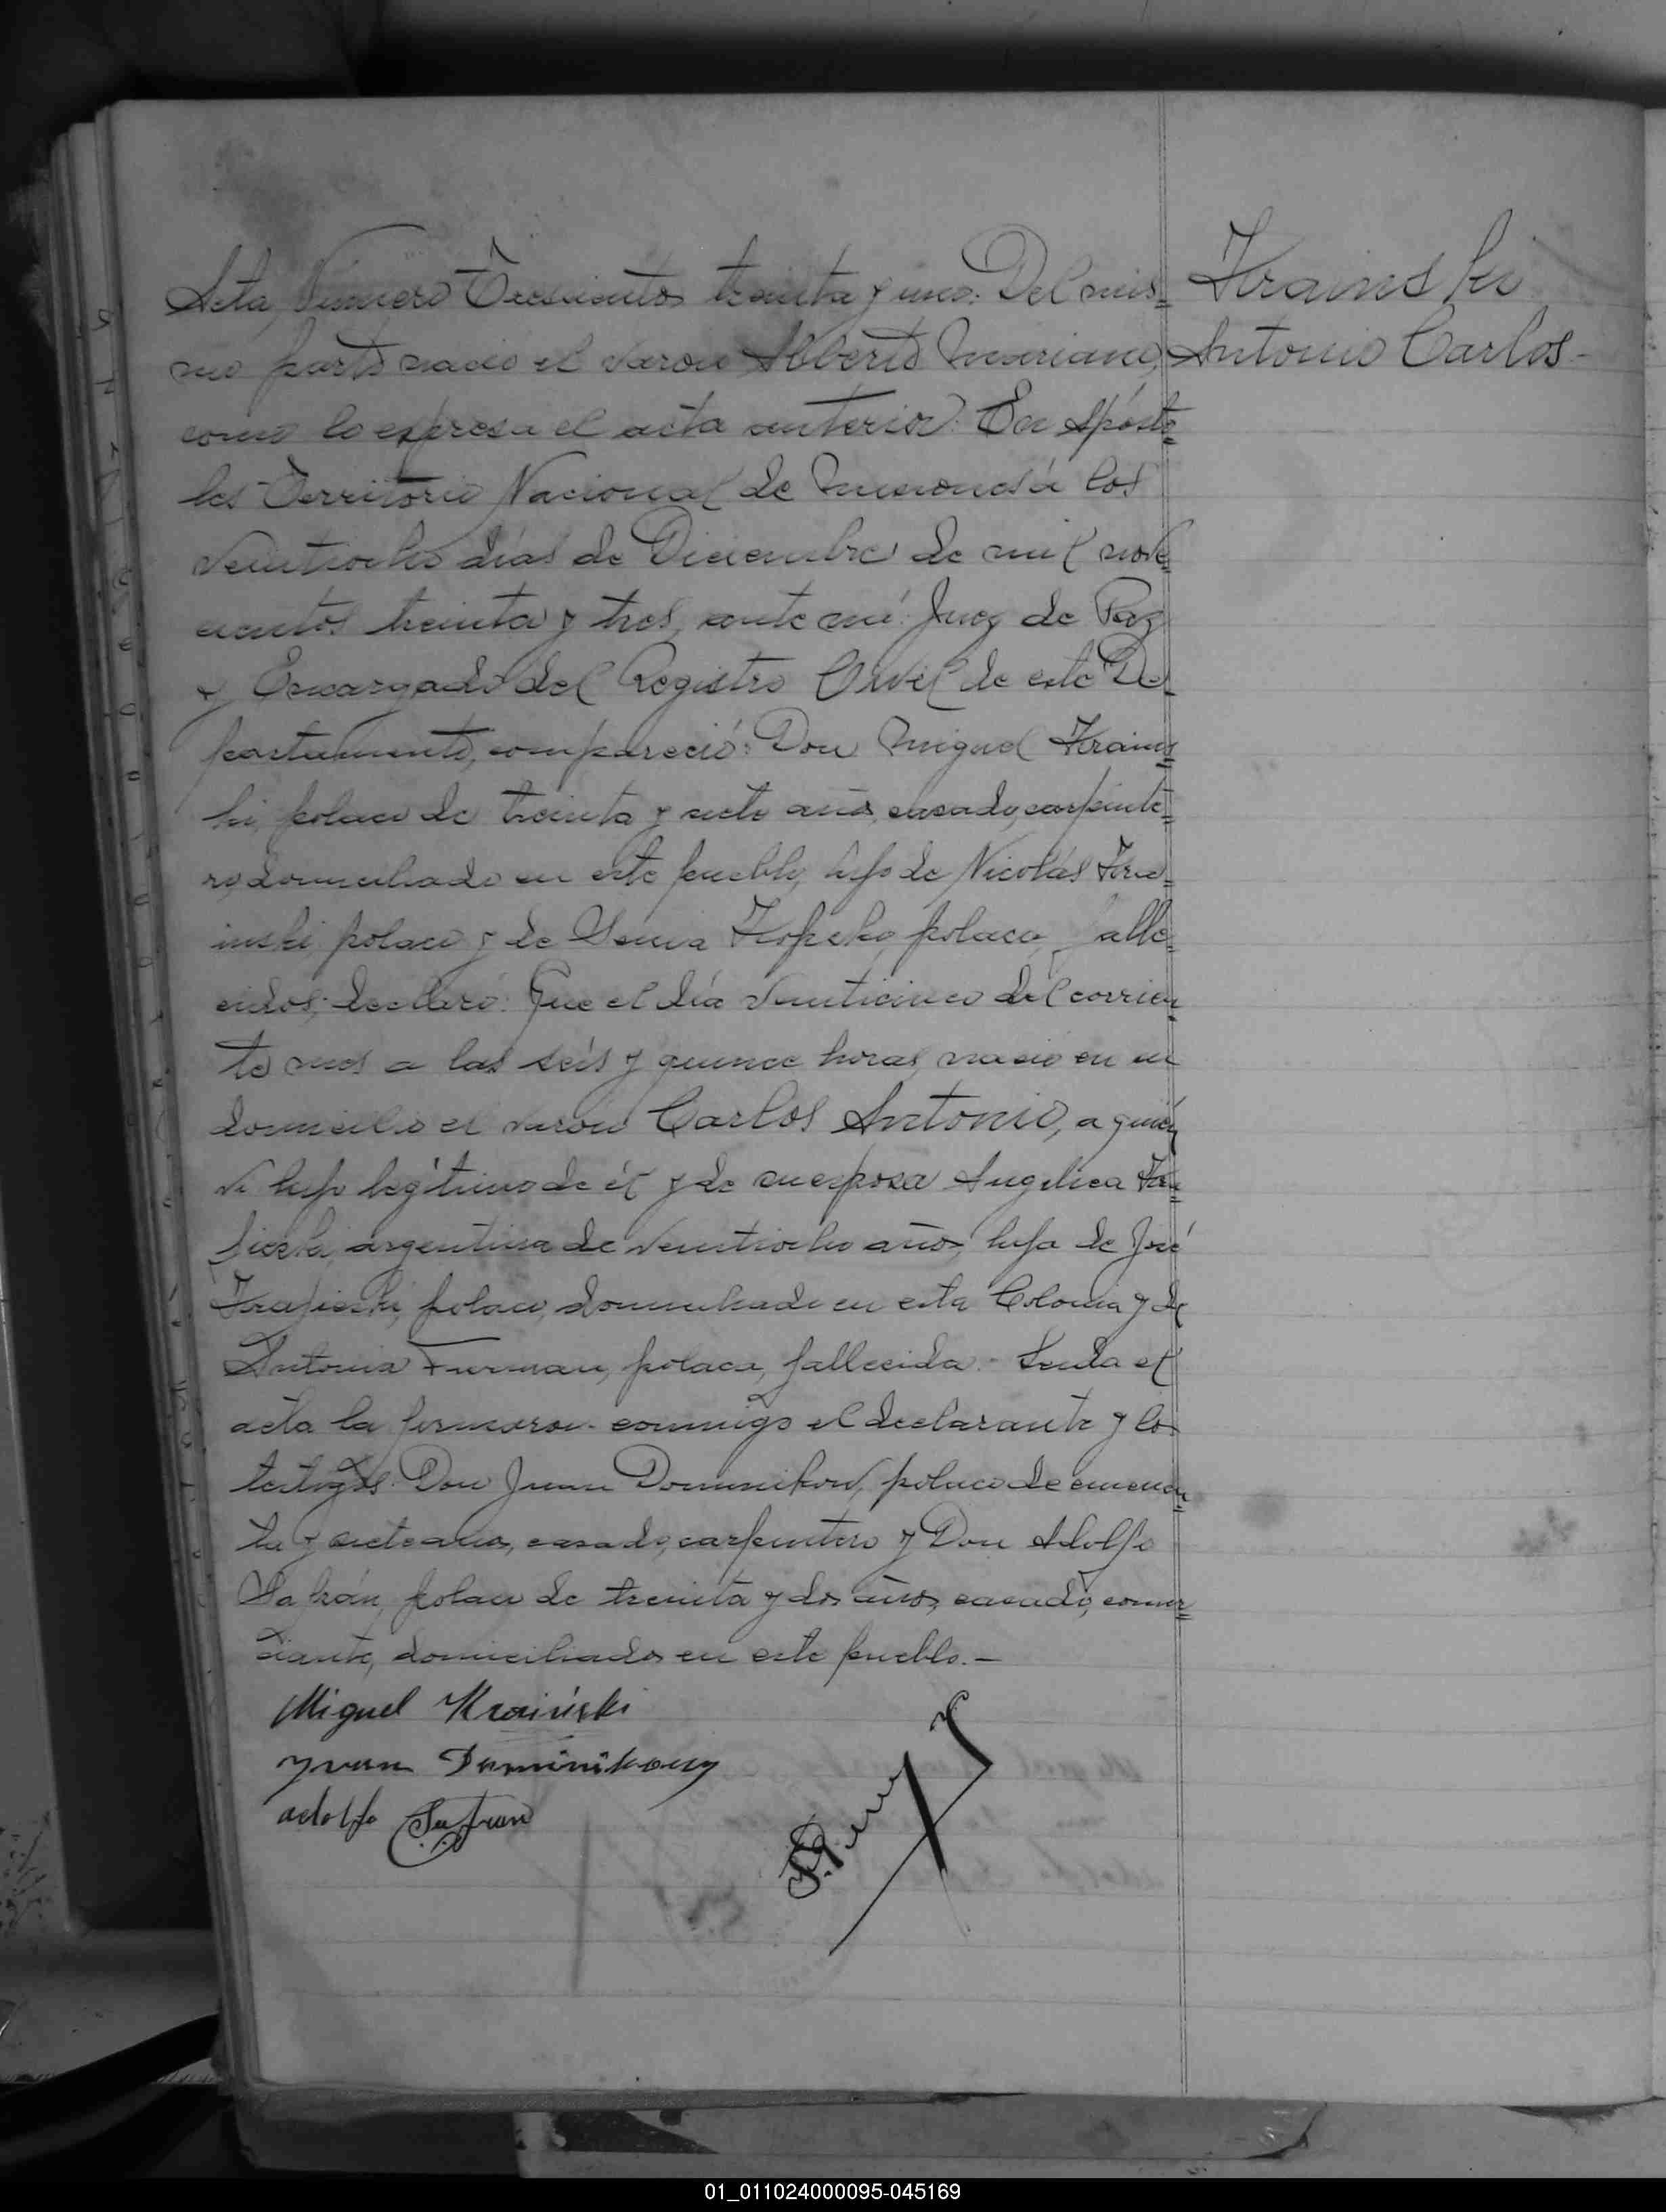 Acta Número Trescientos treinta y uno: Del mis=
mo parto nació el varon Alberto Mariano,
como lo expresa el acta anterior: En Aposto=
les Territorio Nacional de Misiones á los
veintiocho días de Diciembre de mil nove=
cientos treinta y tres, ante mí: Juez de Paz
y Encargado del Registro Civil de este De=
partamento, compareció: Don Miguel Krains=
ki, polaco de treinta y siete años, casado, carpinte=
ro, domiciliado en este pueblo, hijo de Nicolás Kra=
inski, polaco y de polaca, falle=
cidos; declaró: Que el día veinticinco del corrien=
te mes a las seis y quince horas, nació en su
domicilio el varon Carlos Antonio, a quién
vi hijo legítimo de él y de su esposa Angelica
argentina de veintiocho años, hija de José
polaco, domiciliado en esta Colonia y de
Antonia Furman, polaca, fallecida.- Leida el
acta la firmaron conmigo el declarante y los
testigos: Don Juan Dominikow, polaco de cincuen=
ta y siete años, casado, carpintero y Don Adolfo
Safrán, polaco de treinta y dos años, casado, comer=
ciante, domiciliados en este pueblo.-
Krains ki
Antonio Carlos-
Miguel Kraiński
Yvan Dominikowy
adolfo Safran
01_011024000095-045169